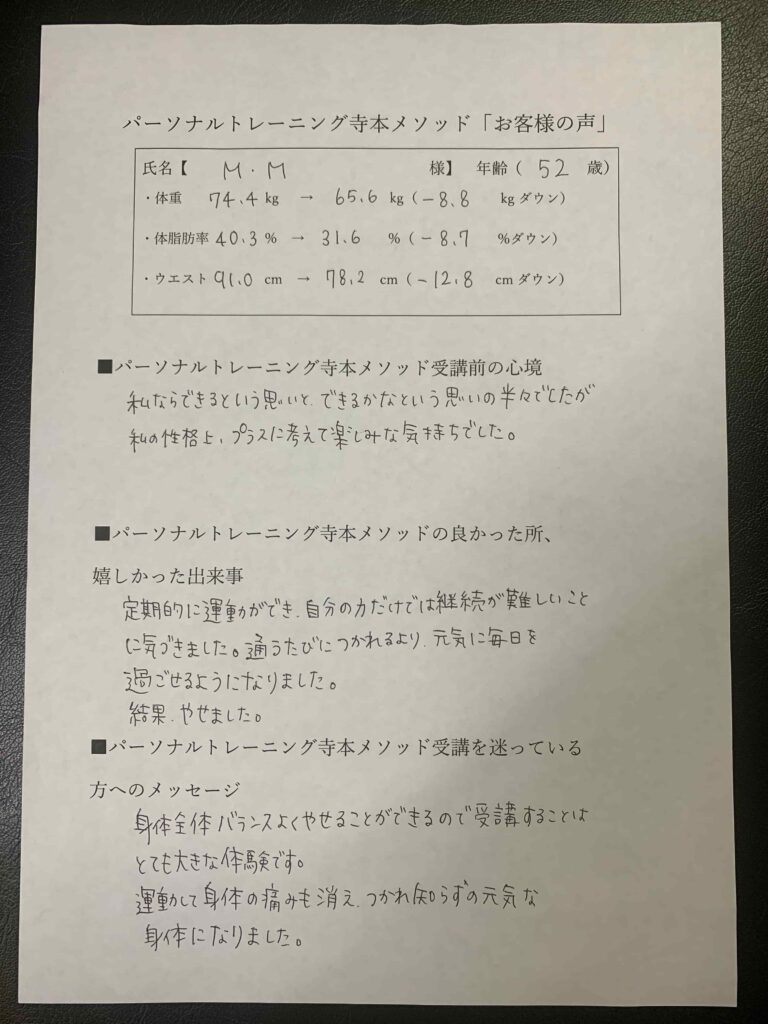 パーソナルトレーニング寺本メソッド「お客様の声」
氏名【 M.M 様】 年齢( 52 歳)
・体重 74.4 kg → 65.6 kg (-8.8 kgダウン)
・体脂肪率 40.3 % → 31.6 % (-8.7 %ダウン)
・ウエスト 91.0 cm → 78.2 cm (-12.8 cmダウン)
■パーソナルトレーニング寺本メソッド受講前の心境
私ならできるという思いと、できるかなという思いの半々でしたが
私の性格上、プラスに考えて楽しみな気持ちでした。
■パーソナルトレーニング寺本メソッドの良かった所、
嬉しかった出来事
定期的に運動ができ、自分の力だけでは継続が難しいこと
に気づきました。通うたびにつかれるより、元気に毎日を
過ごせるようになりました。
結果、やせました。
■パーソナルトレーニング寺本メソッド受講を迷っている
方へのメッセージ
身体全体バランスよくやせることができるので受講することは
とても大きな体験です。
運動して身体の痛みも消え、つかれ知らずの元気な
身体になりました。